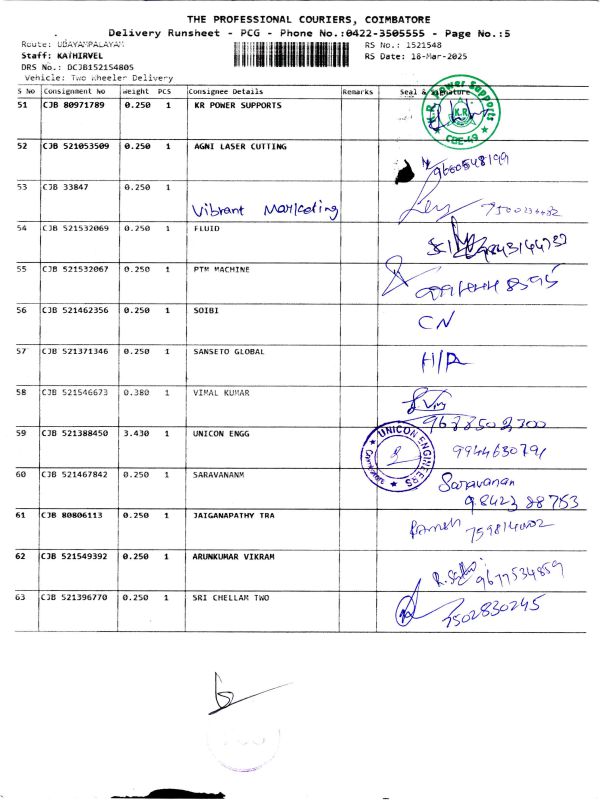 THE PROFESSIONAL COURIERS, COIMBATORE
Delivery Runsheet - PCG - Phone No.:0422-3505555 - Page No.:5
Route: UDAYAMPALAYAM
RS No.: 1521548
Staff: KATHIRVEL
RS Date: 18-Mar-2025
DRS No.: DCJB152154805
Vehicle: Two Wheeler Delivery
S No Consignment No Weight PCS Consignee Details Remarks Seal & Signature
51 CJB 80971789 0.250 1 KR POWER SUPPORTS
K.R. Power Supports
K.R
CBE-49
52 CJB 521053509 0.250 1 AGNI LASER CUTTING
9660548199
53 CJB 33847 0.250 1
Vibrant Marketing
54 CJB 521532069 0.250 1 FLUID
55 CJB 521532067 0.250 1 PTM MACHINE
56 CJB 521462356 0.250 1 SOIBI
CN
57 CJB 521371346 0.250 1 SANSETO GLOBAL
58 CJB 521546673 0.380 1 VIMAL KUMAR
59 CJB 521388450 3.430 1 UNICON ENGG
UNICON ENGINEERS
9944630791
60 CJB 521467842 0.250 1 SARAVANANM
Saravanan
98423 88753
61 CJB 80806113 0.250 1 JAIGANAPATHY TRA
62 CJB 521549392 0.250 1 ARUNKUMAR VIKRAM
9677534859
63 CJB 521396770 0.250 1 SRI CHELLAM TWO
7502830245